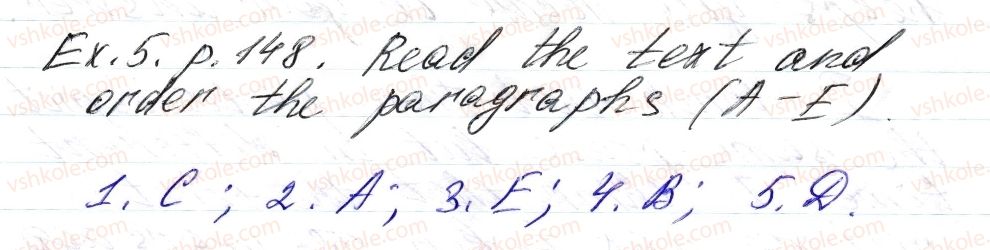 Ex. 5. p. 148. Read the text and
order the paragraphs (A-E).
1. C; 2. A; 3. E; 4. B; 5. D.